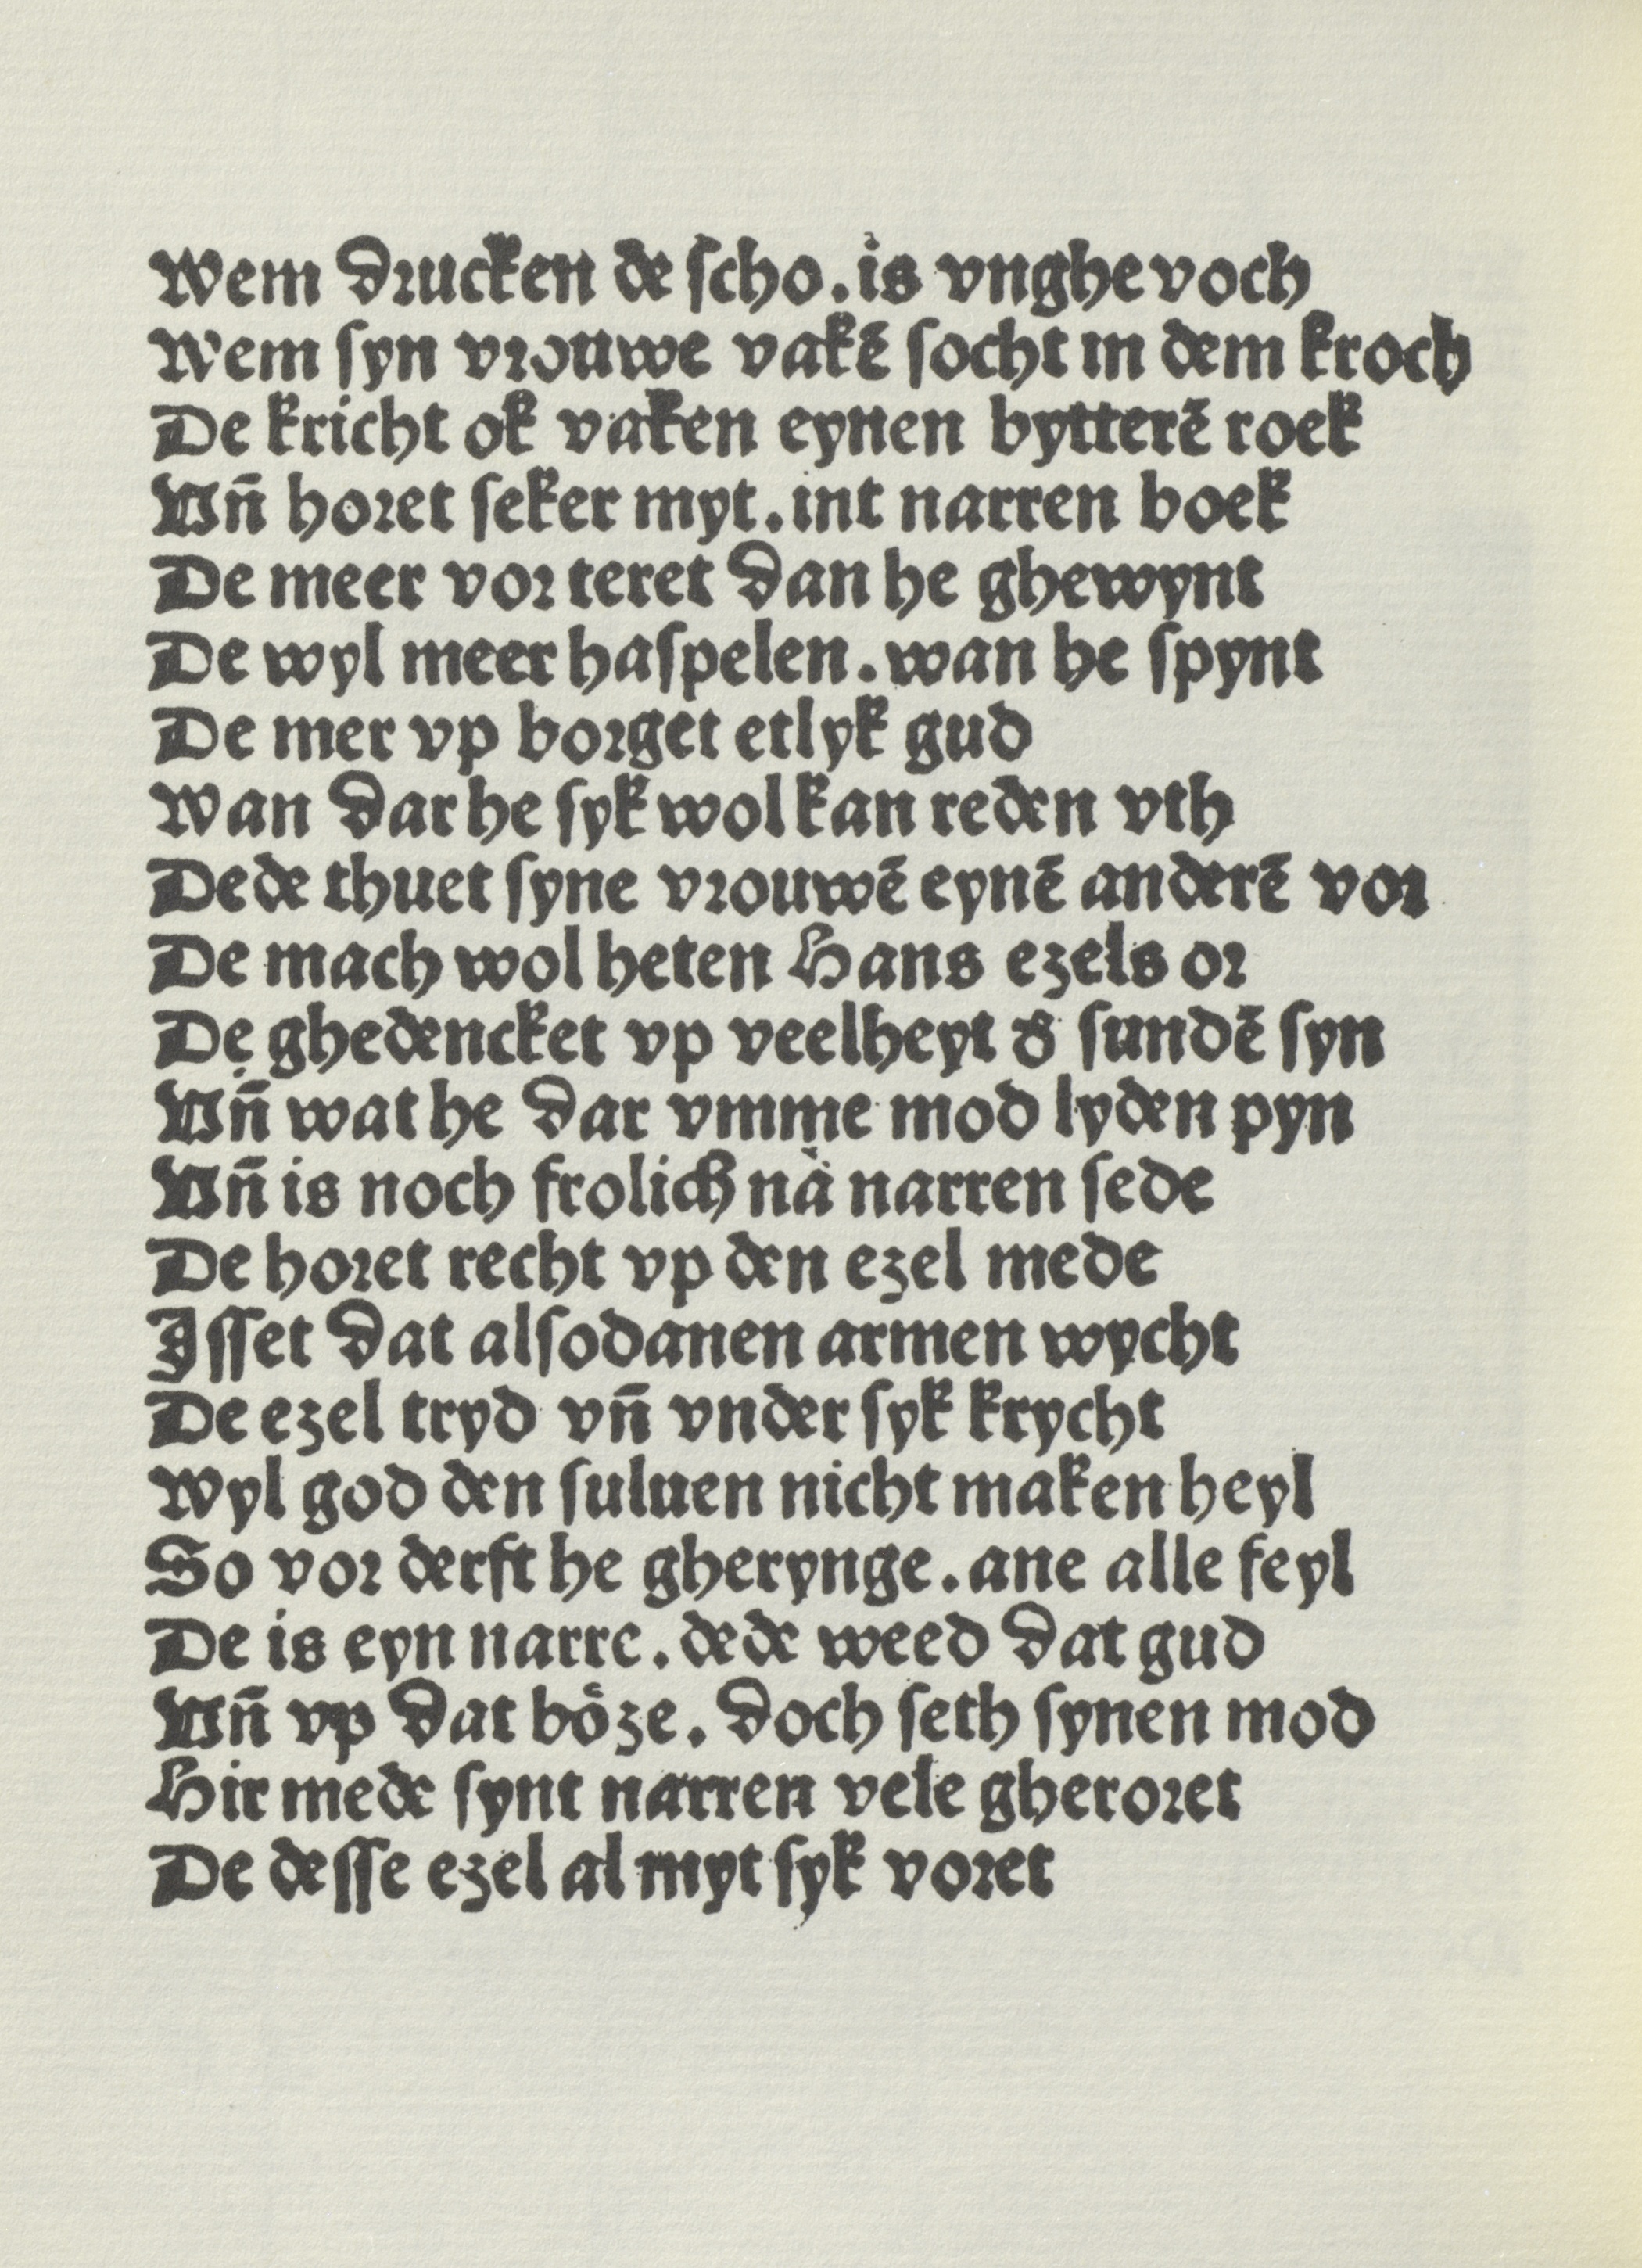 Wem drucken de ſcho. is vnghevoch
Wem ſyn vrouwe vakē ſocht in dem kroch
De kricht ok vaken eynen bytterē roek
Vn̄ horet ſeker myt. int narren boek
De meer vor teret dan he ghewynt
De wyl meer haſpelen. wan he ſpynt
De mer vp borget etlyk gud
Wan dar he ſyk wol kan reden vth
Dede thuet ſyne vrouwē eynē anderē vor
De mach wol heten Hans ezels or
De ghedencket vp veelheyt ď ſundē ſyn
Vn̄ wat he dar vmme mod lyden pyn
Vn̄ is noch frolich nȧ narren ſede
De horet recht vp den ezel mede
Iſſet dat alſodanen armen wycht
De ezel tryd vn̄ vnder ſyk krycht
Wyl god den ſuluen nicht maken heyl
So vor derft he gherynge. ane alle feyl
De is eyn narre. dede weed dat gud
Vn̄ vp dat boͤze. doch ſeth ſynen mod
Hir mede ſynt narren vele gheroret
De deſſe ezel al myt ſyk voret